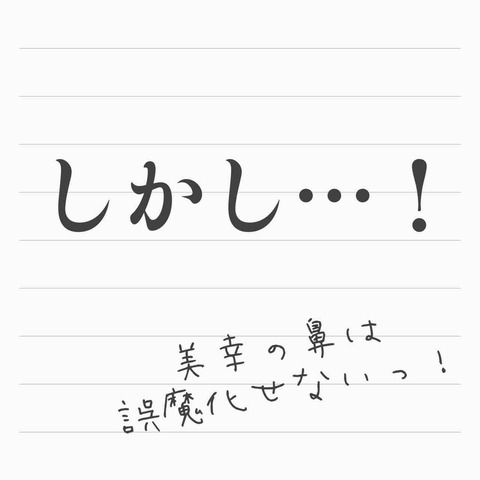 しかし…！
美幸の鼻は
誤魔化せないっ！